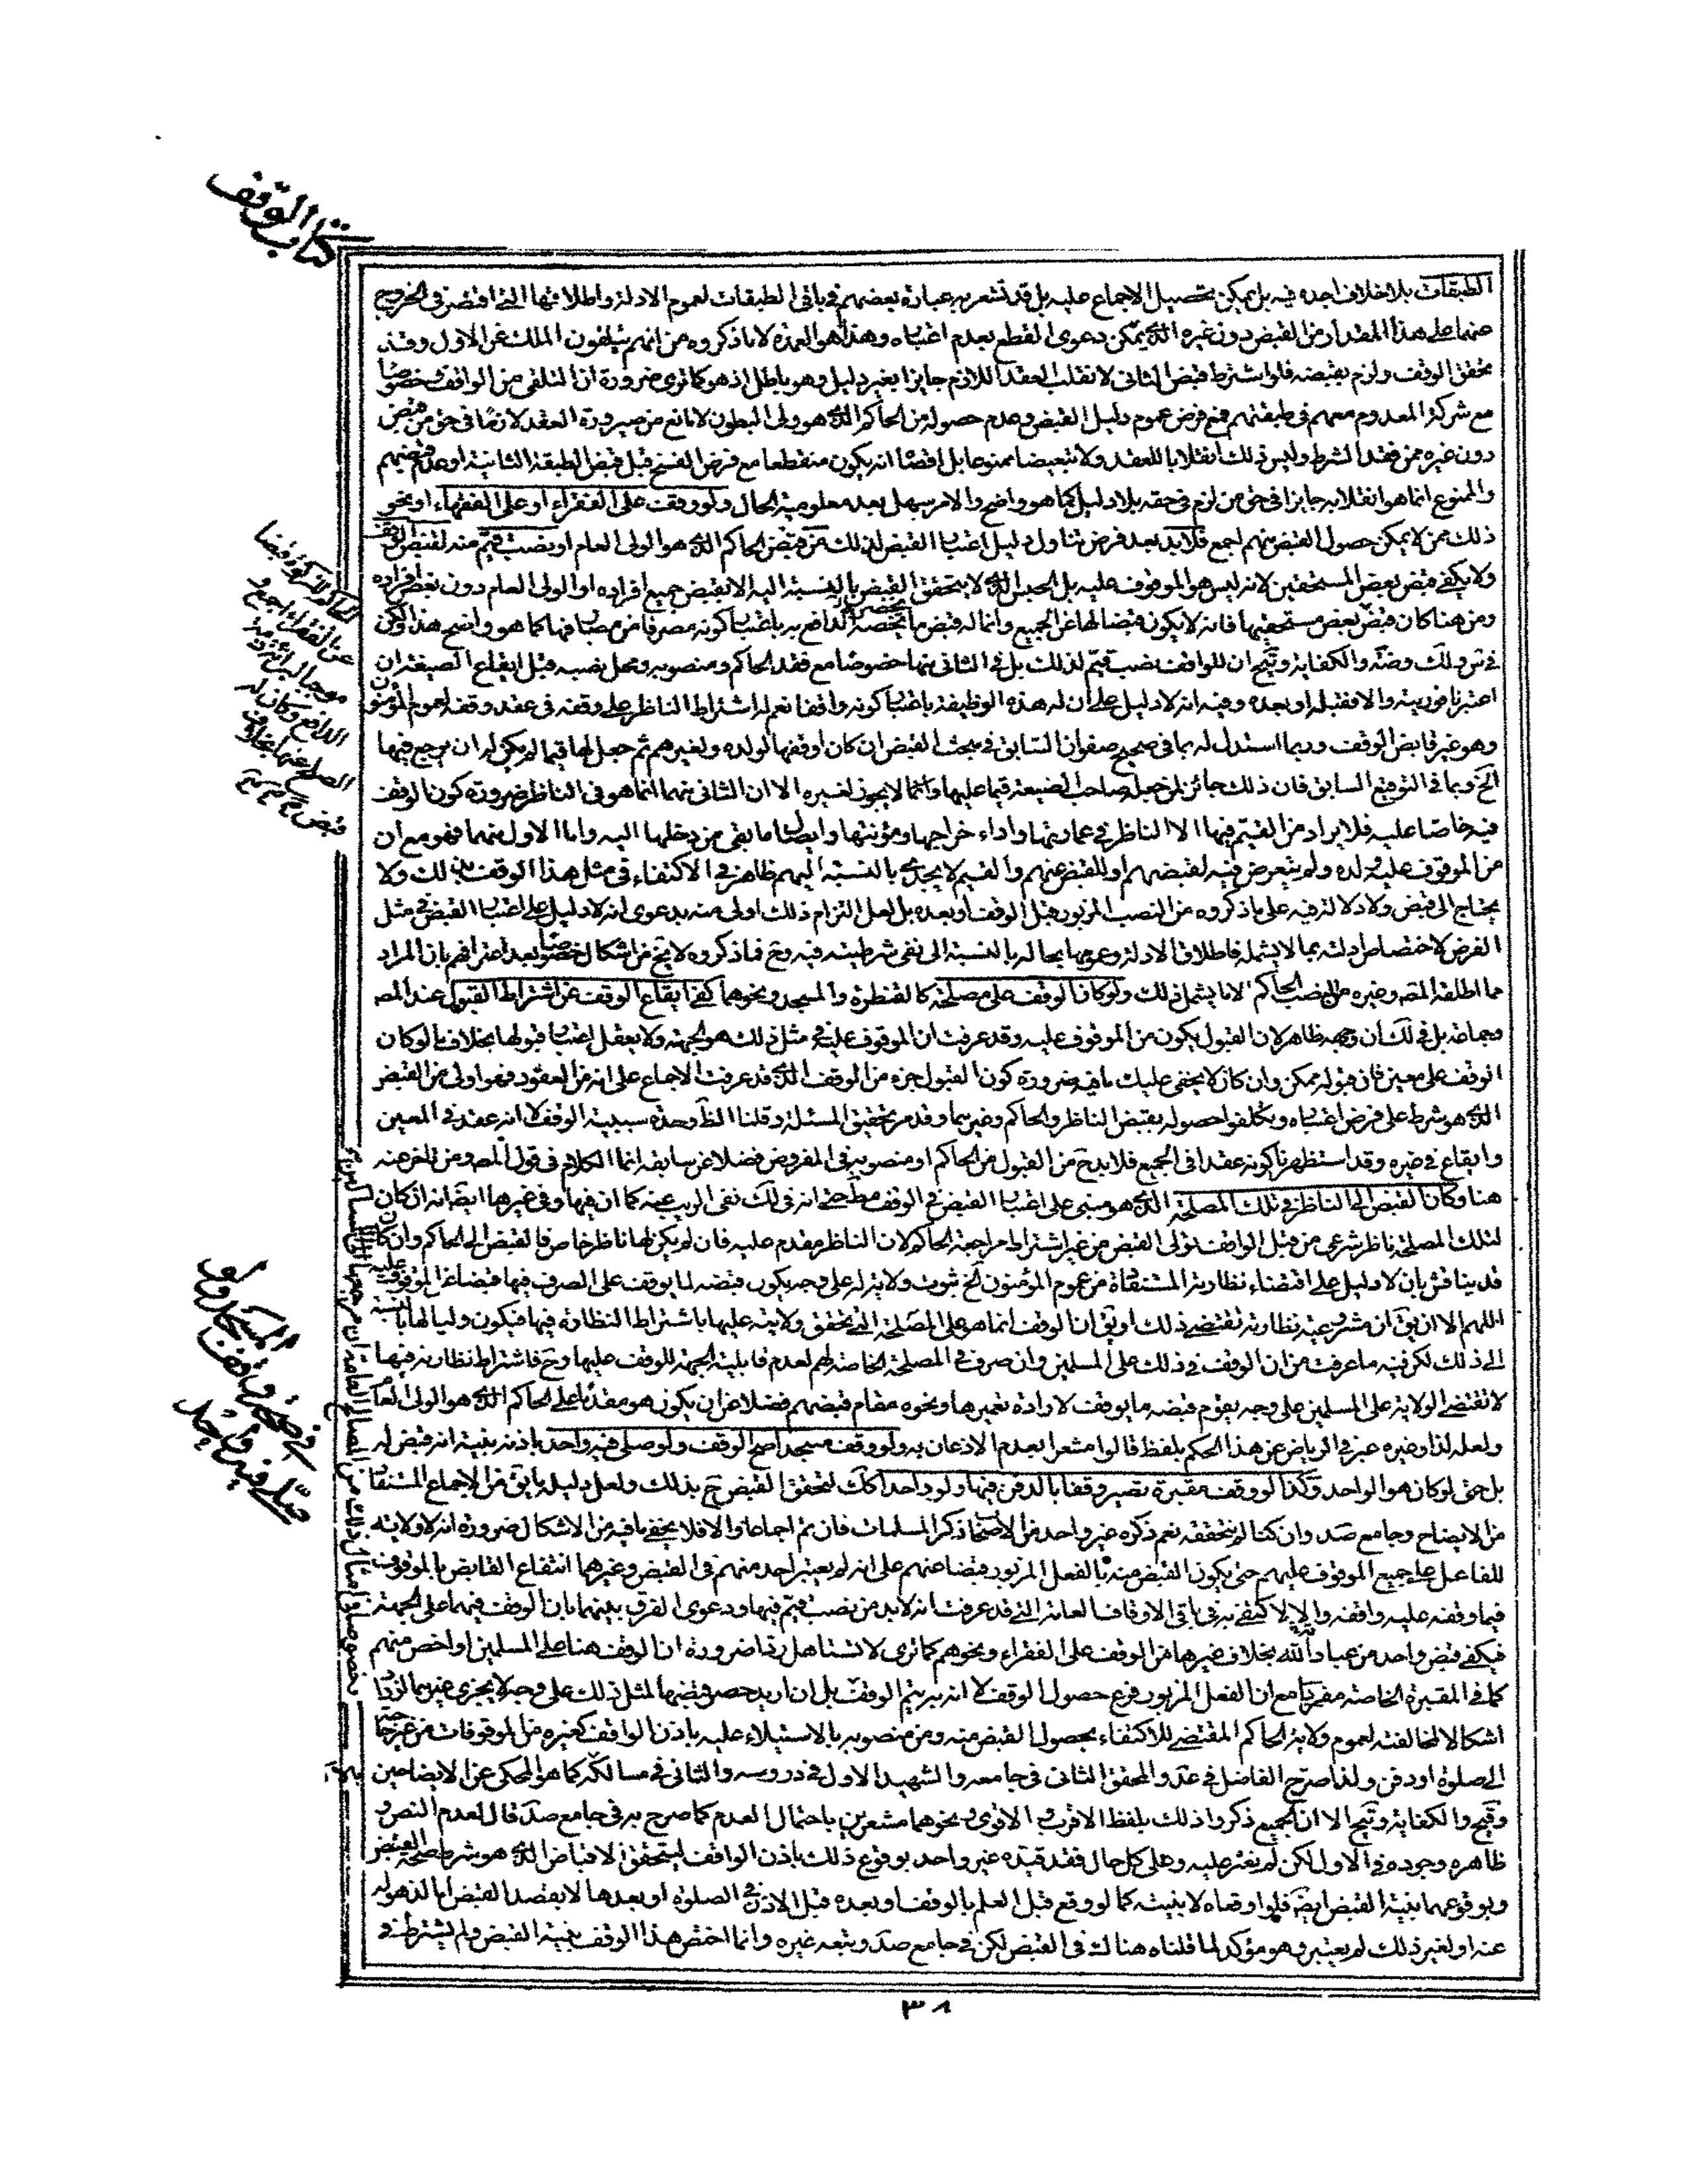 كتاب الوقف
الطبقات بلا خلاف اجده فيه بل يمكن تحصيل الاجماع عليه بل قد تشعر به عبارة بعضهم في باقي الطبقات لعموم الادلة واطلاقها التي اقتصر في الخروج
عنها على هذا المقدار من القبض دون غيره الذي يمكن دعوى القطع بعدم اعتباره وهذا هو العمدة لا ما ذكروه من انهم يتلقون الملك عن الاول وقد
تحقق الوقف ولزم بقبضه فلو اشترط قبض الثاني لانقلب العقد اللازم جايزا بغير دليل وهو باطل اذ هو كما ترى ضرورة ان التلقي من الواقف خصوصا
مع شركة المعدوم معهم في طبقتهم فمع فرض عموم دليل القبض وعدم حصوله من الحاكم الذي هو ولي البطون لا مانع من صيرورة العقد لازما في حق من قبض
دون غيره ممن فقد الشرط وليس ذلك انقلابا للعقد ولا تبعيضا ممنوعا بل اقصاه انه يكون منقطعا مع فرض الفسخ قبل قبض الطبقة الثانية او عدم قبضهم
والممنوع انما هو انقلابه جايزا في حق من لزم في حقه بلا دليل كما هو واضح والامر سهل بعد معلومية الحال ولو وقف على الفقراء او على الفقهاء او نحو
ذلك ممن لا يمكن حصول القبض منهم اجمع فلا بد بعد فرض تناول دليل اعتبار القبض لذلك من قبض الحاكم الذي هو الولي العام او نصب قيم منه لقبض الوقف
ولا يكفي قبض بعض المستحقين لانه ليس هو الموقوف عليه بل الجنس الذي لا يتحقق القبض بالنسبة اليه الا بقبض جميع افراده او الولي العام دون بعض افراده
ومن هنا كان قبض بعض مستحقيها فانه لا يكون قبضا لها عن الجميع وانما له قبض ما يخصه الدافع به باعتبار كونه مصرفا من مصارفها كما هو واضح هذا ولكن
في س ولك وضة والكفاية و يح ان للواقف نصب قيم لذلك بل في الثاني منها خصوصا مع فقد الحاكم ومنصوبه ومحل نصبه قبل ايقاع الصيغة ان
اعتبرنا فوريته والا فقبله او بعده وفيه انه لا دليل على ان له هذه الوظيفة باعتبار كونه واقفا نعم له اشتراط الناظر على وقفه في عقد وقفه لعموم المؤمنون
وهو غير قابض الوقف وربما استدل له بما في صحيح صفوان السابق في مبحث القبض ان كان اوقفها لولده ولغيرهم ثم جعل لها قيما لم يكن له ان يرجع فيها
الخ وبما في التوقيع السابق فان ذلك جائز لمن جعل صاحب الضيعة قيما عليها وانما لا يجوز لغيره الا ان الثاني منهما انما هو في الناظر ضرورة كون الوقف
فيه خاصا عليه فلا يراد من القيم فيها الا الناظر في عمارتها واداء خراجها ومؤنتها وايصال ما بقي من دخلها اليه واما الاول منهما فهو مع ان
من الموقوف عليه ولده ولم يتعرض فيه لقبضهم او للقبض عنهم والقيم لا يجدي بالنسبة اليهم ظاهر في الاكتفاء في مثل هذا الوقف بذلك ولا
يحتاج الى قبض ولا دلالة فيه على ما ذكروه من النصب المزبور قبل الوقف او بعده بل لعل التزام ذلك اولى منه بدعوى انه لا دليل على اعتبار القبض في مثل
الفرض لاختصاص ادلته بما لا يشمله فاطلاق الادلة وعمومها بحاله بالنسبة الى نفي شرطيته فيه وح فما ذكروه لا يخ من اشكال خصوصا بعد اعترافهم بان المراد
مما اطلقه المص وغيره من نصب الحاكم لا ما يشمل ذلك ولو كان الوقف على مصلحة كالقنطرة والمسجد ونحوهما كفى ايقاع الوقف عن اشتراط القبول عند المص
وجماعة بل في لك ان وجهه ظاهر لان القبول يكون من الموقوف عليه وقد عرفت ان الموقوف عليه في مثل ذلك هو الجهة ولا يعقل اعتبار قبولها بخلاف ما لو كان
الوقف على معين فان قبوله ممكن وان كان لا يخفى عليك ما فيه ضرورة كون القبول جزء من الوقف الذي قد عرفت الاجماع على انه من العقود فهو اولى من القبض
الذي هو شرط على فرض اعتباره وتكلفوا حصوله بقبض الناظر والحاكم وغيرهما وقد مر تحقيق المسئلة وقلنا الظ وحدة سببية الوقف لا انه عقد في المعين
وايقاع في غيره وقد استظهرنا كونه عقدا في الجميع فلا بد ح من القبول من الحاكم او منصوبه في المفروض فضلا عن سابقه انما الكلام في قول المص ومن تاخر عنه
هنا وكان القبض الى الناظر في تلك المصلحة الذي هو مبني على اعتبار القبض في الوقف مط حتى انه في لك نفى الريب عنه كما ان فيها وفي غيرها ايضا انه ان كان
لتلك المصلحة ناظر شرعي من قبل الواقف تولى القبض من غير اشتراط مراجعة الحاكم لان الناظر مقدم عليه فان لم يكن لها ناظر خاص فالقبض الى الحاكم وان كان
قد يناقش بان لا دليل على اقتضاء نظارته المستفادة من عموم المؤمنون الخ ثبوت ولاية له على وجه يكون قبضه لما يوقف على الصرف فيها قبضا عن الموقوف عليه
اللهم الا ان يق ان مشروعية نظارته تقتضي ذلك او يق ان الوقف انما هو على المصلحة التي تحقق ولايته عليها باشتراط النظارة فيها فيكون وليا لها بالنسبة
الى ذلك لكن فيه ما عرفت من ان الوقف في ذلك على المسلمين وان صرف في المصلحة الخاصة لهم لعدم قابلية الجهة للوقف عليها وح فاشتراط نظارته فيها
لا تقتضي الولاية على المسلمين على وجه يقوم قبضه ما يوقف لارادة تعميرها ونحوه مقام قبضهم فضلا عن ان يكون هو مقدما على الحاكم الذي هو الولي العام
ولعله لذا وغيره عبر في الرياض عن هذا الحكم بلفظ قالوا مشعرا بعدم الاذعان به ولو وقف مسجدا صح الوقف ولو صلى فيه واحد باذنه بنية انه قبض له
بل حتى لو كان هو الواحد وكذا لو وقف مقبرة تصير وقفا بالدفن فيها ولو واحدا كك لتحقق القبض ح بذلك ولعل دليله ما يق من الاجماع المستفاد
من الايضاح وجامع صد وان كنا لم نتحققه نعم ذكره غير واحد من الاصحاب ذكر المسلمات فان تم اجماعا والا فلا يخفى ما فيه من الاشكال ضرورة انه لا ولاية
للفاعل على جميع الموقوف عليهم حتى يكون القبض منه بالفعل المزبور قبضا عنهم على انه لم يعتبر احد منهم في القبض وغيرهما انتفاع القابض بالموقوف
فيما وقفه عليه واقفه والا لاكتفي به في باقي الاوقاف العامة التي قد عرفت انه لا بد من نصب قيم فيها ودعوى الفرق بينهما بان الوقف فيهما على الجهة
فيكفي قبض واحد من عباد الله بخلاف غيرها من الوقف على الفقراء ونحوهم كما ترى لا تستاهل ردا ضرورة ان الوقف هنا على المسلمين او اخص منهم
كما في المقبرة الخاصة مفروضا مع ان الفعل المزبور فرع حصول الوقف لا انه به يتم الوقف بل ان اريد حصر قبضها لمثل ذلك على وجه لا يجزي غيرهما ازداد
اشكالا لمخالفته لعموم ولاية الحاكم المقتضي للاكتفاء بحصول القبض منه ومن منصوبه بالاستيلاء عليه باذن الواقف كغيره من الموقوفات من غير حاجة
الى صلوة او دفن ولذا صرح الفاضل في عد والمحقق الثاني في جامعه والشهيد الاول في دروسه والثاني في مسالكه كما هو المحكي عن الايضاحين
وضح والكفاية و يح الا ان الجميع ذكروا ذلك بلفظ الاقرب والاقوى ونحوهما مشعرين باحتمال العدم كما صرح به في جامع صد قال لعدم النص و
ظاهره وجوده في الاول لكن لم نعثر عليه وعلى كل حال فقد قيده غير واحد بوقوع ذلك باذن الواقف ليتحقق الاقباض الذي هو شرط صحة القبض
وبوقوعهما بنية القبض ايضا فلو اوقعاه لا بنيته كما لو وقع قبل العلم بالوقف او بعده قبل الاذن في الصلوة او بعدها لا بقصد القبض اما لذهوله
عنه او لغير ذلك لم يعتبر وهو مؤكد لما قلناه هناك في القبض لكن في جامع صد وتبعه غيره وانما اختص هذا الوقف بنية القبض ولم يشترط في
عن الفقراء اجمع و
الدافع وكان له
الصلح عنها بخلاف
٣٨